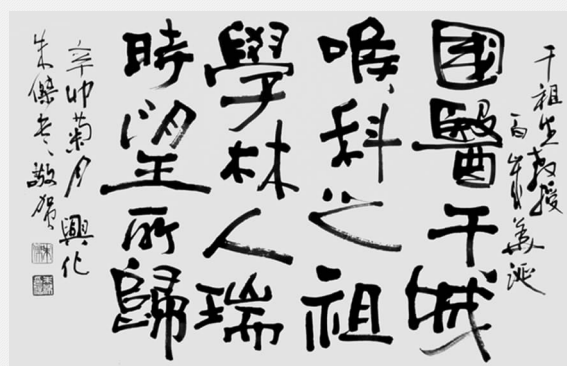 干祖望教授
百岁華誕
國醫干城
喉科之祖
學林人瑞
時望所歸
辛卯菊月興化
朱傑書敬賀